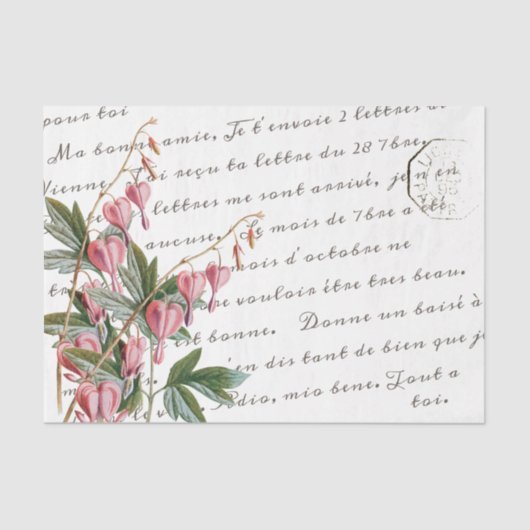 pour toi
Ma bonne amie, Je t'envoie 2 lettres de
Vienne. J'ai reçu ta lettre du 28 7bre.
lettres me sont arrivé, je n en
aucuse. Le mois de 7bre a été
mois d'octobre ne
vouloir étre tres beau.
est bonne. Donne un baisé à
'en dis tant de bien que je
dio, mio bene. Tout a
toi.